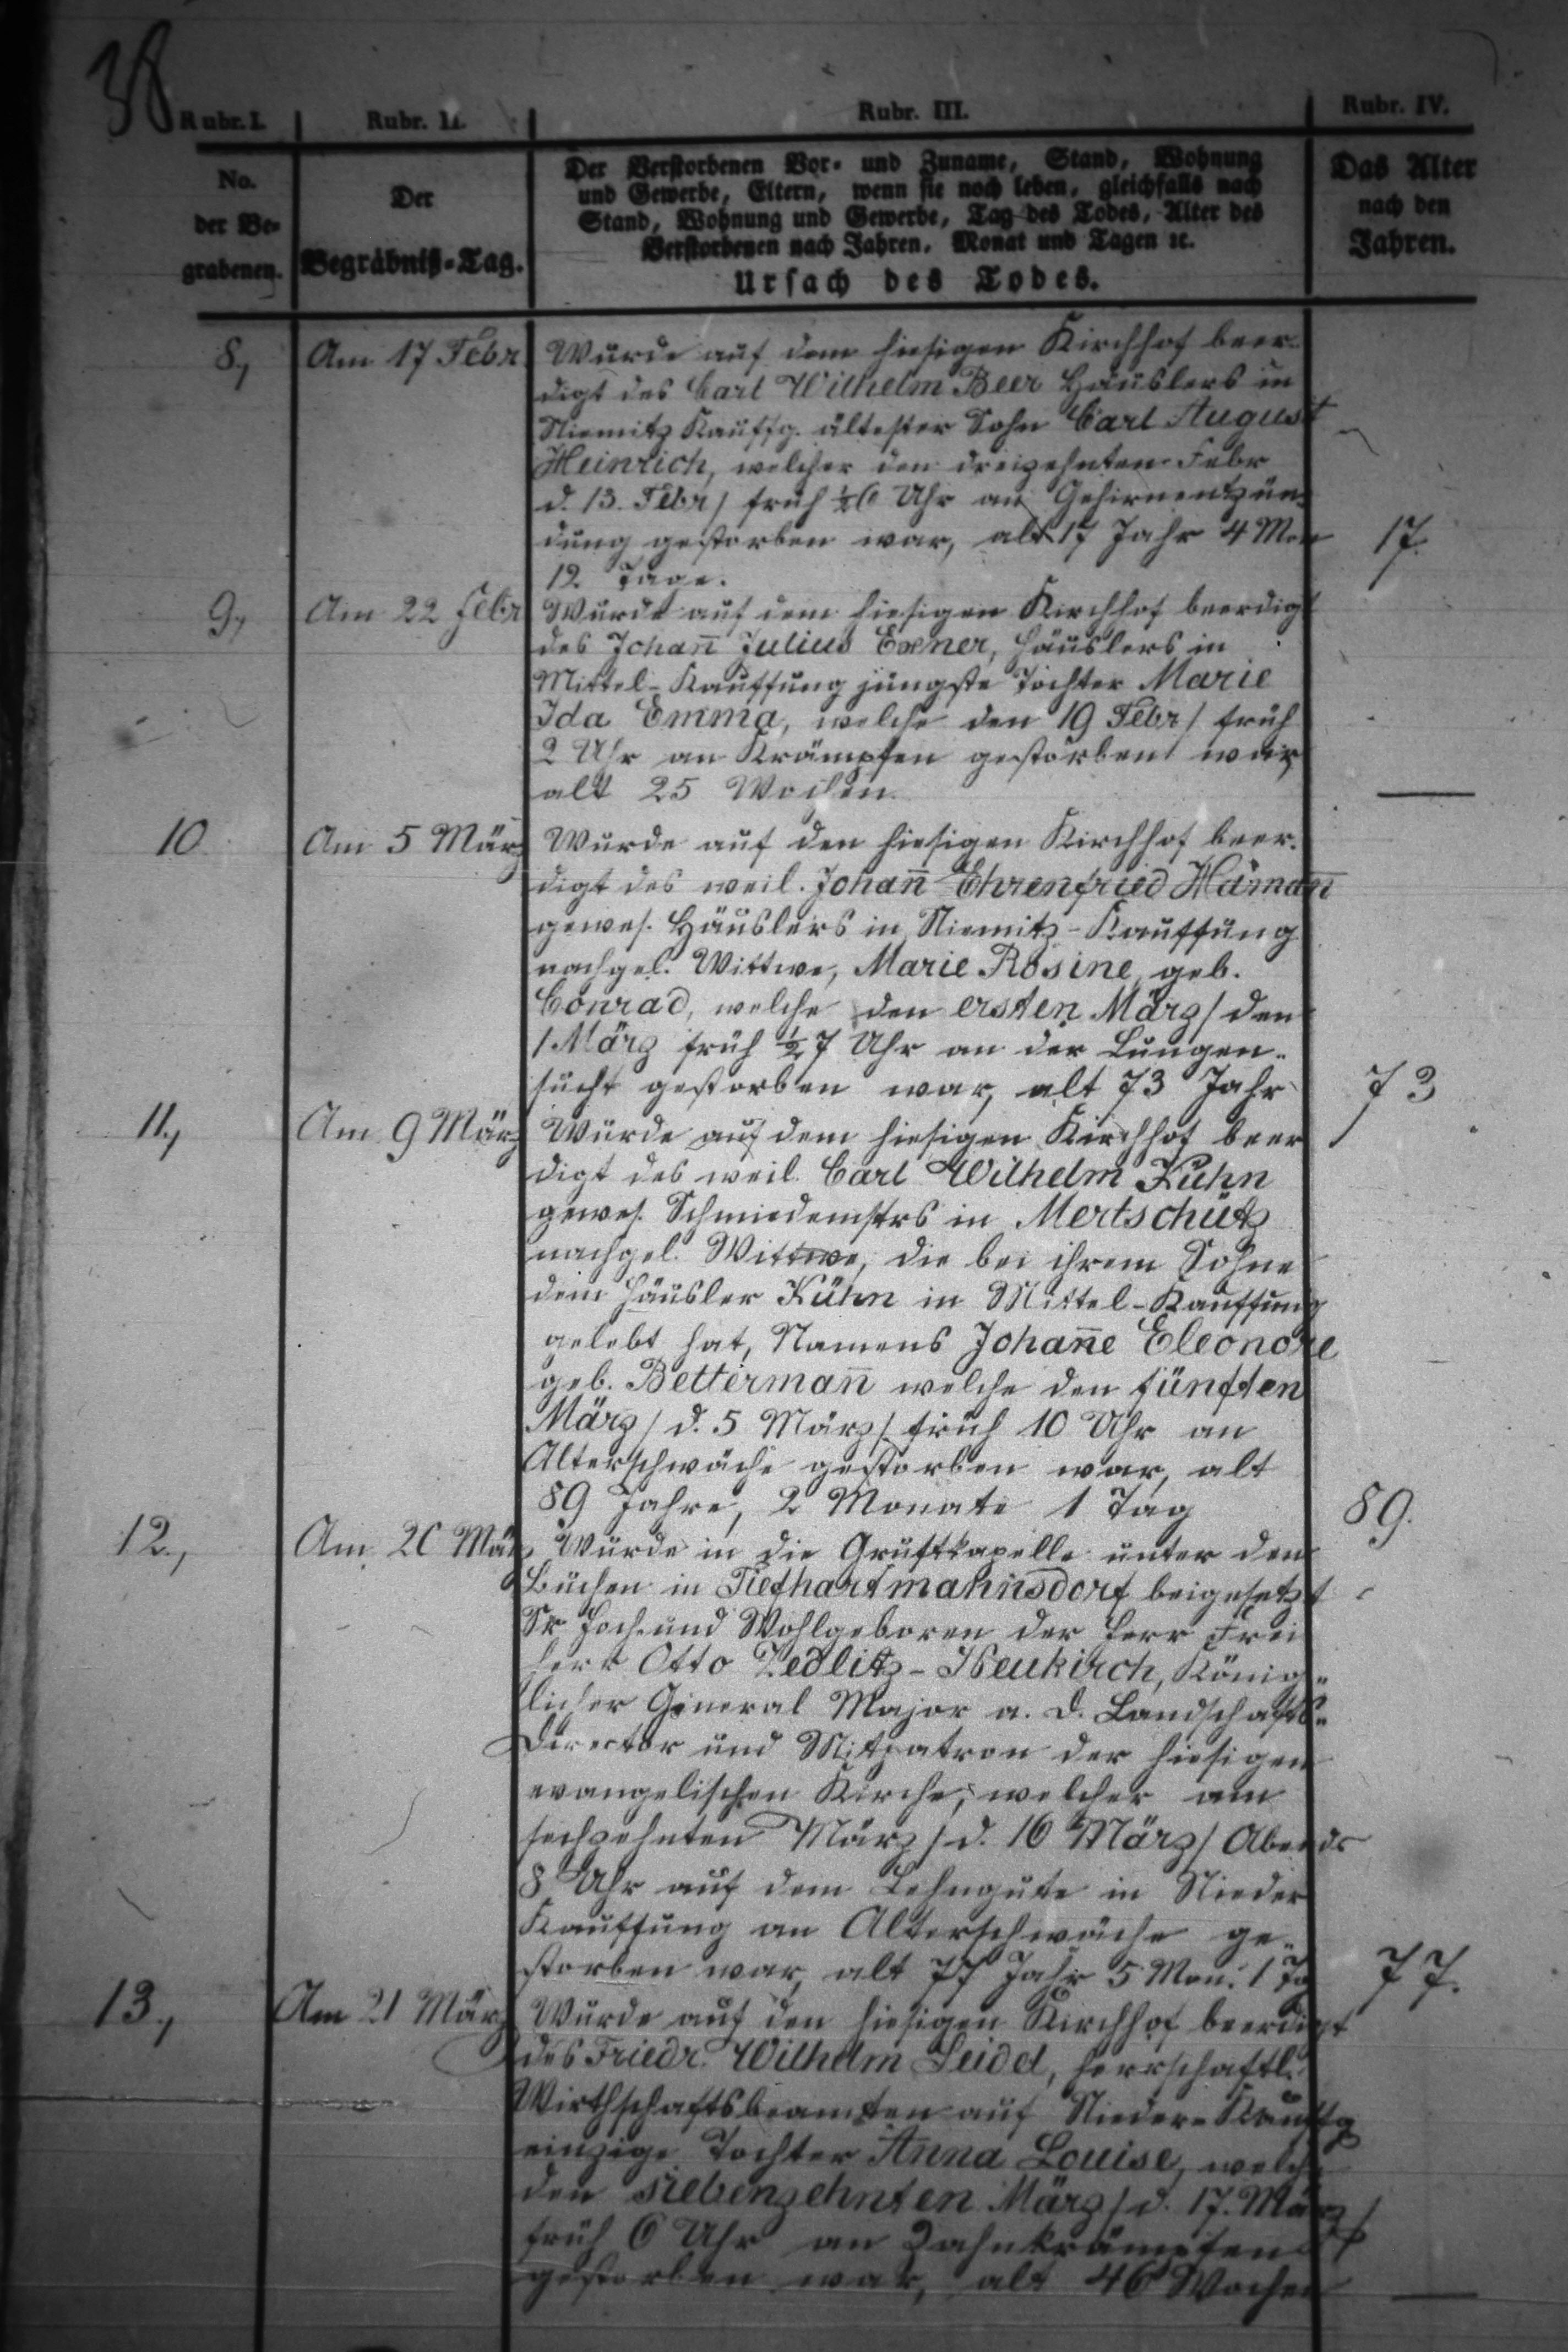 38
Rubr. I. Rubr. II. Rubr. III. Rubr. IV.
No. der Be-grabenen.
Der Begräbniß-Tag.
Der Verstorbenen Vor- und Zuname, Stand, Wohnung
und Gewerbe, Eltern, wenn sie noch leben, gleichfalls nach
Stand, Wohnung und Gewerbe, Tag des Todes, Alter des
Verstorbenen nach Jahren, Monat und Tagen ꝛc.
Ursach des Todes.
Das Alter
nach den
Jahren.
8, Am 17 Febr. Wurde auf dem hiesigen Kirchhof beer-
digt des Carl Wilhelm Beer Häuslers in
Niemitz Kauffg. ältester Sohn Carl August
Heinrich, welcher den dreizehnten Febr
d. 13. Febr/ früh ½6 Uhr an Gehirnentzün-
dung gestorben war, alt 17 Jahr 4 Mon 17.
12 Tage.
9, Am 22 Febr Wurde auf dem hiesigen Kirchhof beerdigt
des Johañ Julius Exner, Häuslers in
Mittel-Kauffung jüngste Tochter Marie
Ida Emma, welche den 19 Febr/ früh
2 Uhr an Krämpfen gestorben war
alt 25 Wochen. —
10 Am 5 März Wurde auf den hiesigen Kirchhof beer-
digt des weil. Johañ Ehrenfried Hämañ
gewes. Häuslers in Niemitz-Kauffung
nachgel. Wittwe, Marie Rosine geb.
Conrad, welche den ersten März/ den
1 März früh ½7 Uhr an der Lungen-
sucht gestorben war, alt 73 Jahr 73
11, Am 9 März Wurde auf dem hiesigen Kirchhof beer
digt des weil. Carl Wilhelm Kühn
gewes. Schmiedemstrs in Mertschütz
nachgel. Wittwe, die bei ihrem Sohne
dem Häusler Kühn in Mittel-Kauffung
gelebt hat, Namens Johañe Eleonore
geb. Bettermañ welche den fünften
März/ d. 5 März/ früh 10 Uhr an
Alterschwäche gestorben war, alt
89 Jahre, 2 Monate 1 Tag 89.
12, Am 20 März Wurde in die Gruftkapelle unter den
Büchen in Tiefhartmannsdorf beigesetzt
Sr Hoch- und Wohlgeboren der Herr Frei
herr Otto Zedlitz-Neukirch, König-
licher General Major a. D. Landschafts-
Director und Mitpatron der hiesigen
evangelischen Kirche, welcher am
sechzehnten März/ d. 16 März/ Abends
8 Uhr auf dem Lehngute in Nieder
Kauffung an Alterschwäche ge-
storben war, alt 77 Jahr 5 Mon. 1 Tg 77.
13, Am 21 März Wurde auf den hiesigen Kirchhof beerdigt
des Friedr. Wilhelm Seidel, herrschaftl.
Wirthschaftsbeamten auf Nieder-Kauffg
einzige Tochter Anna Louise, welche
den siebenzehnten März/ d. 17. März/
früh 6 Uhr an Zahnkrämpfen
gestorben war, alt 46 Wochen —